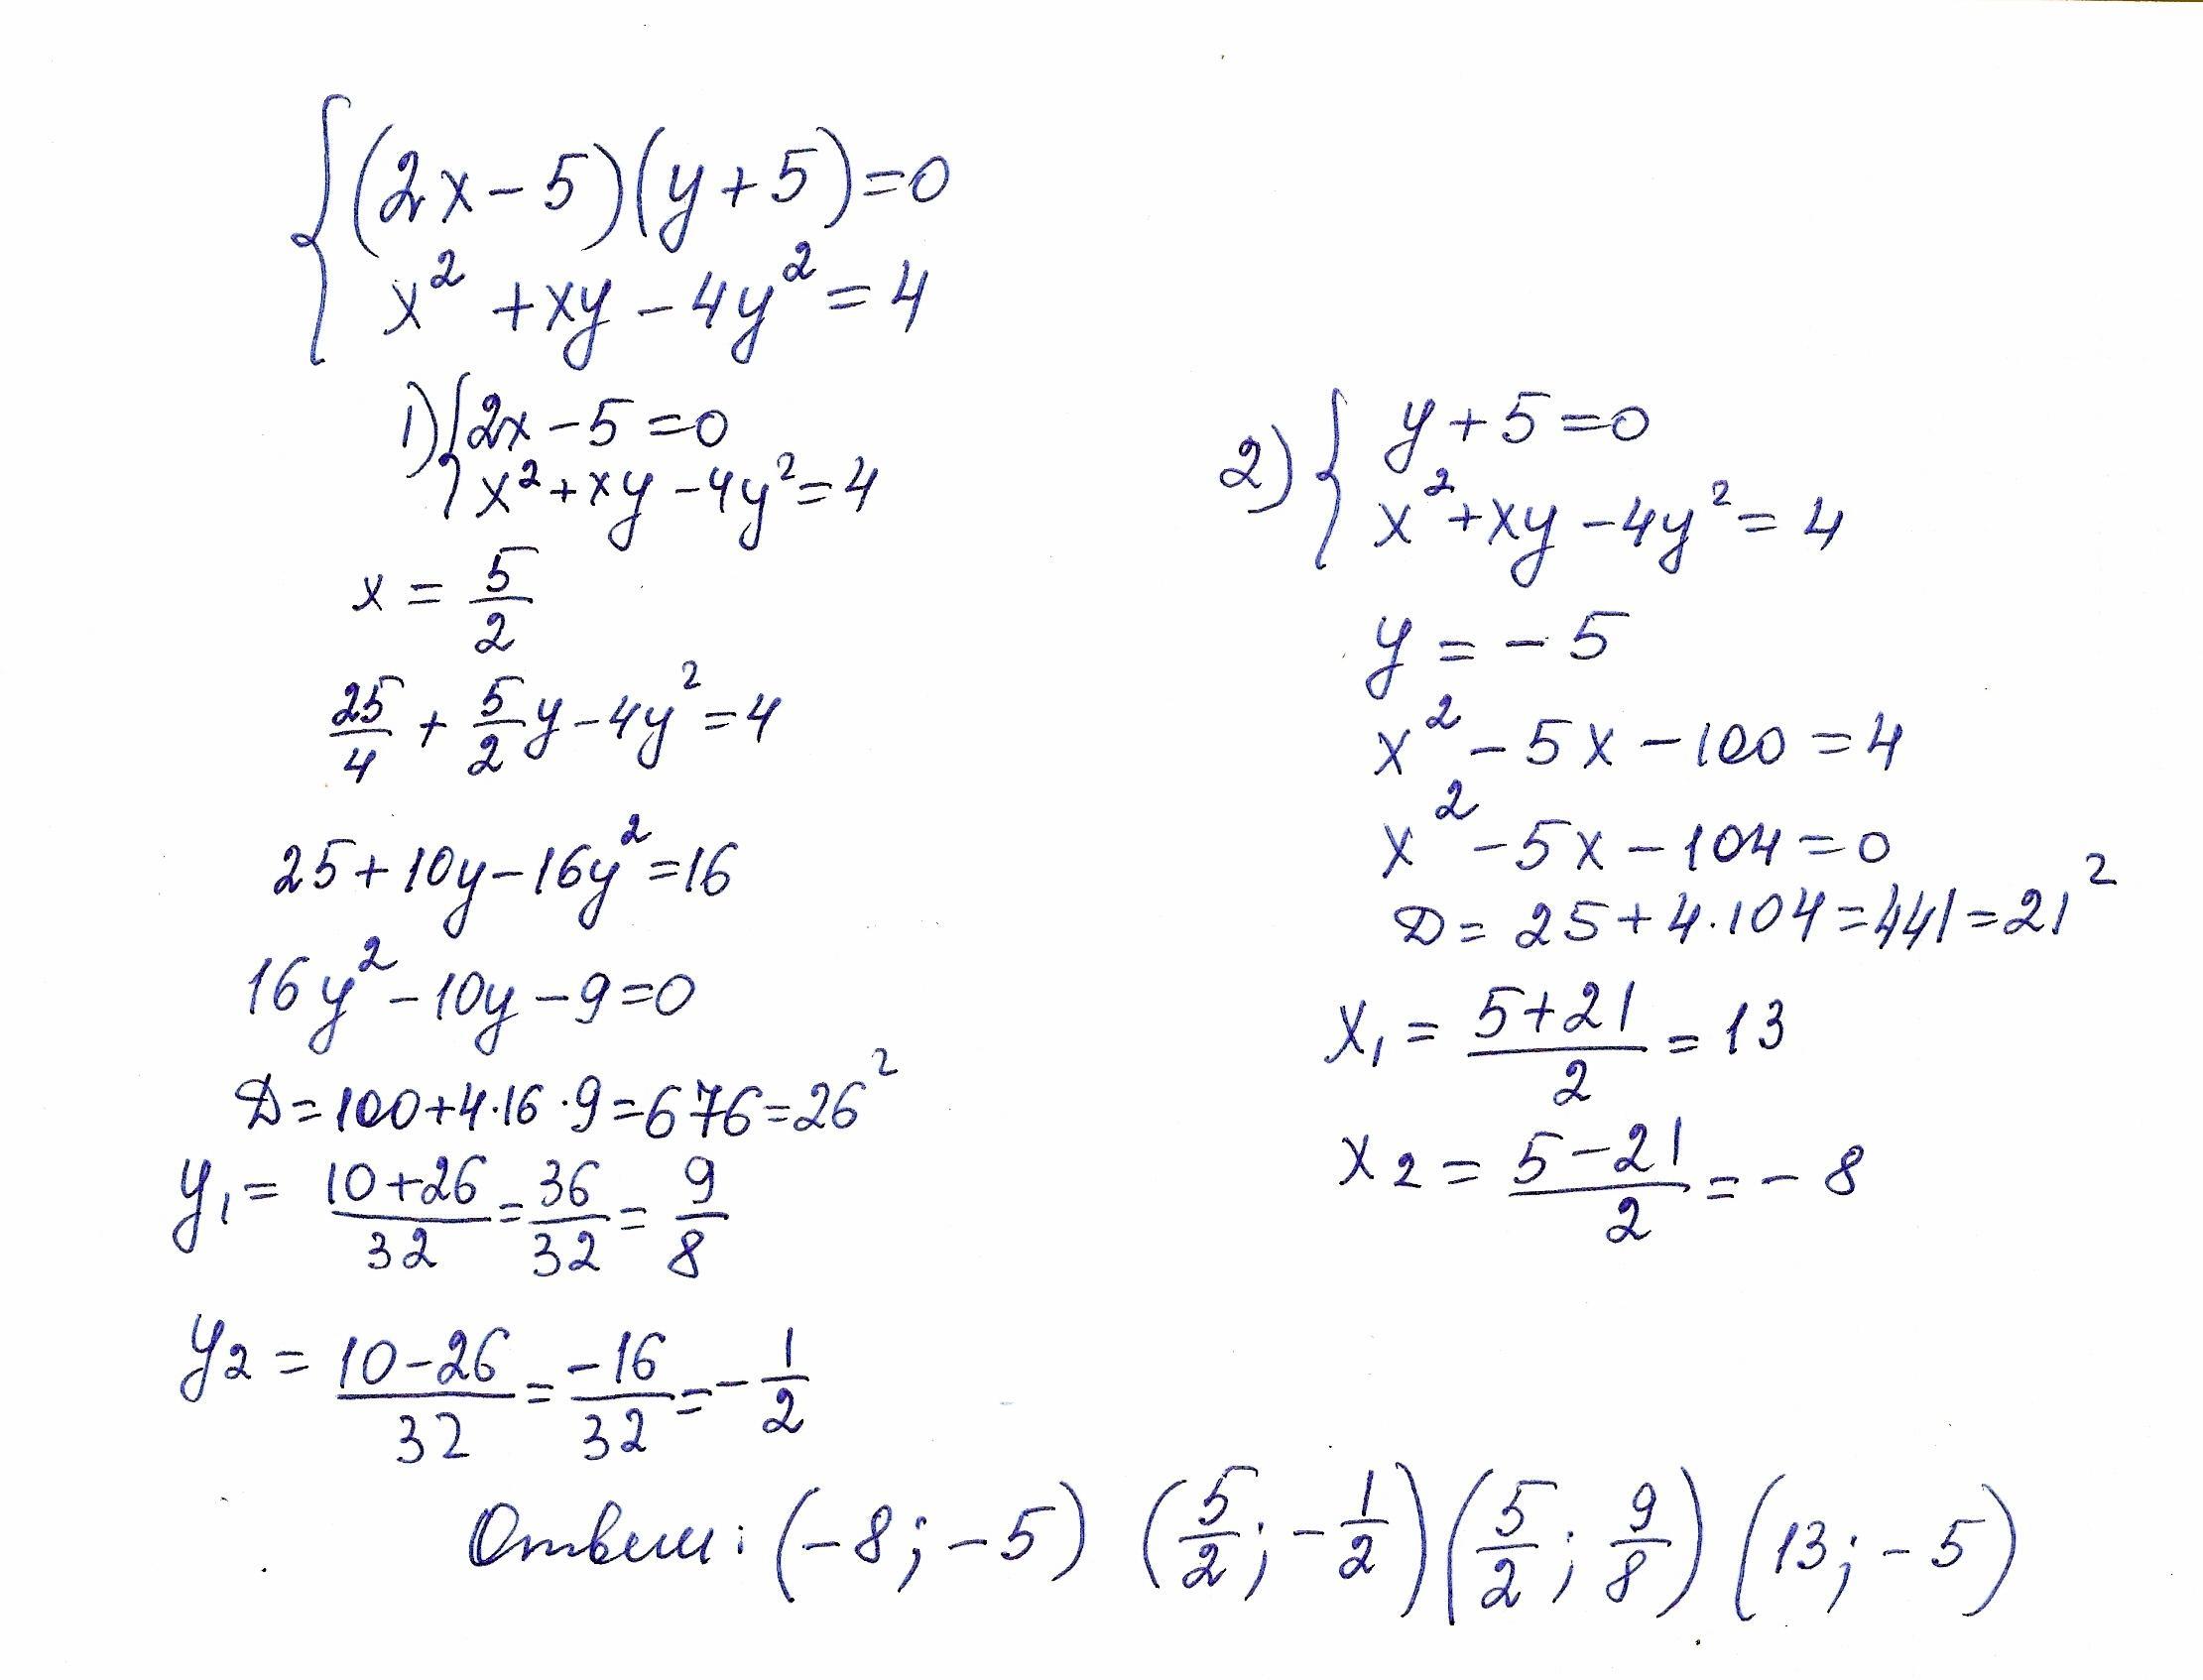 (2x-5)(y+5)=0
x²+xy-4y²=4
1) 2x-5=0
x²+xy-4y²=4
x = 5/2
25/4 + 5/2 y - 4y² = 4
25+10y-16y²=16
16y²-10y-9=0
D=100+4·16·9=676=26²
y₁ = (10+26)/32 = 36/32 = 9/8
y₂ = (10-26)/32 = -16/32 = -1/2
2) y+5=0
x²+xy-4y²=4
y = -5
x²-5x-100=4
x²-5x-104=0
D=25+4·104=441=21²
x₁ = (5+21)/2 = 13
x₂ = (5-21)/2 = -8
Ответ: (-8; -5) (5/2; -1/2) (5/2; 9/8) (13; -5)